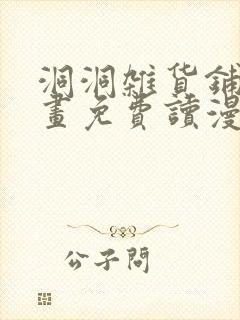 洞洞雜貨鋪
畫免費讀漫
公子問